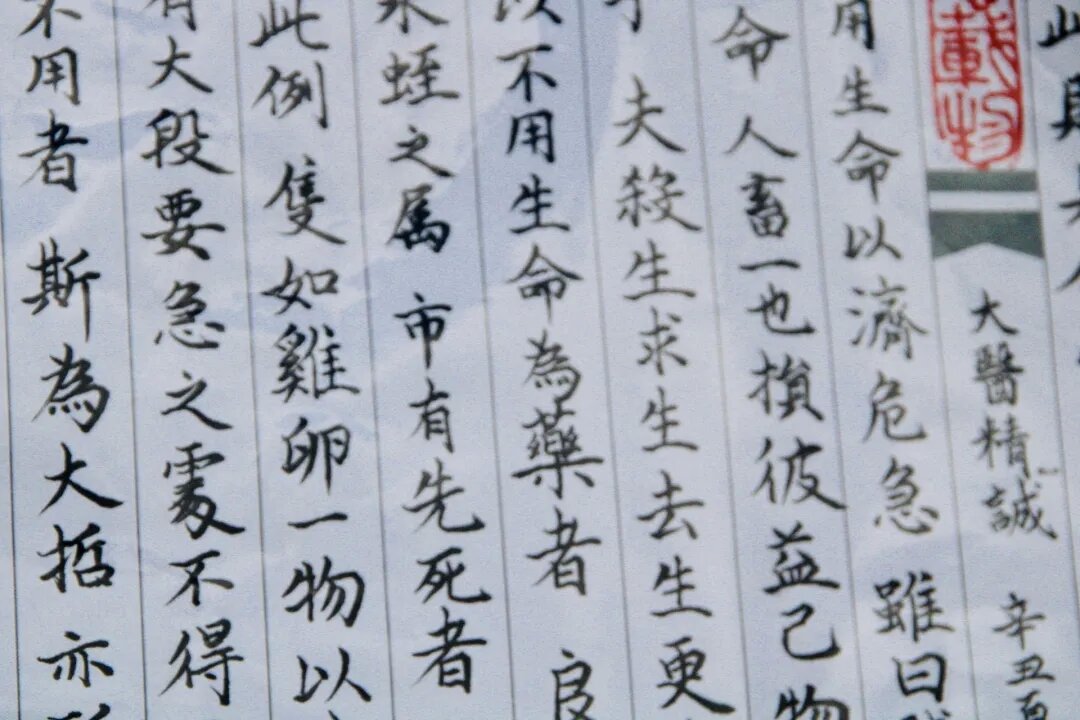 載物
大醫精誠 辛丑
用生命以濟危急 雖曰
命人畜一也損彼益己物
夫殺生求生去生更
以不用生命為藥者 良
水蛭之属 市有先死者
此例 隻如雞卵一物以
有大段要急之處不得
不用者 斯為大哲亦